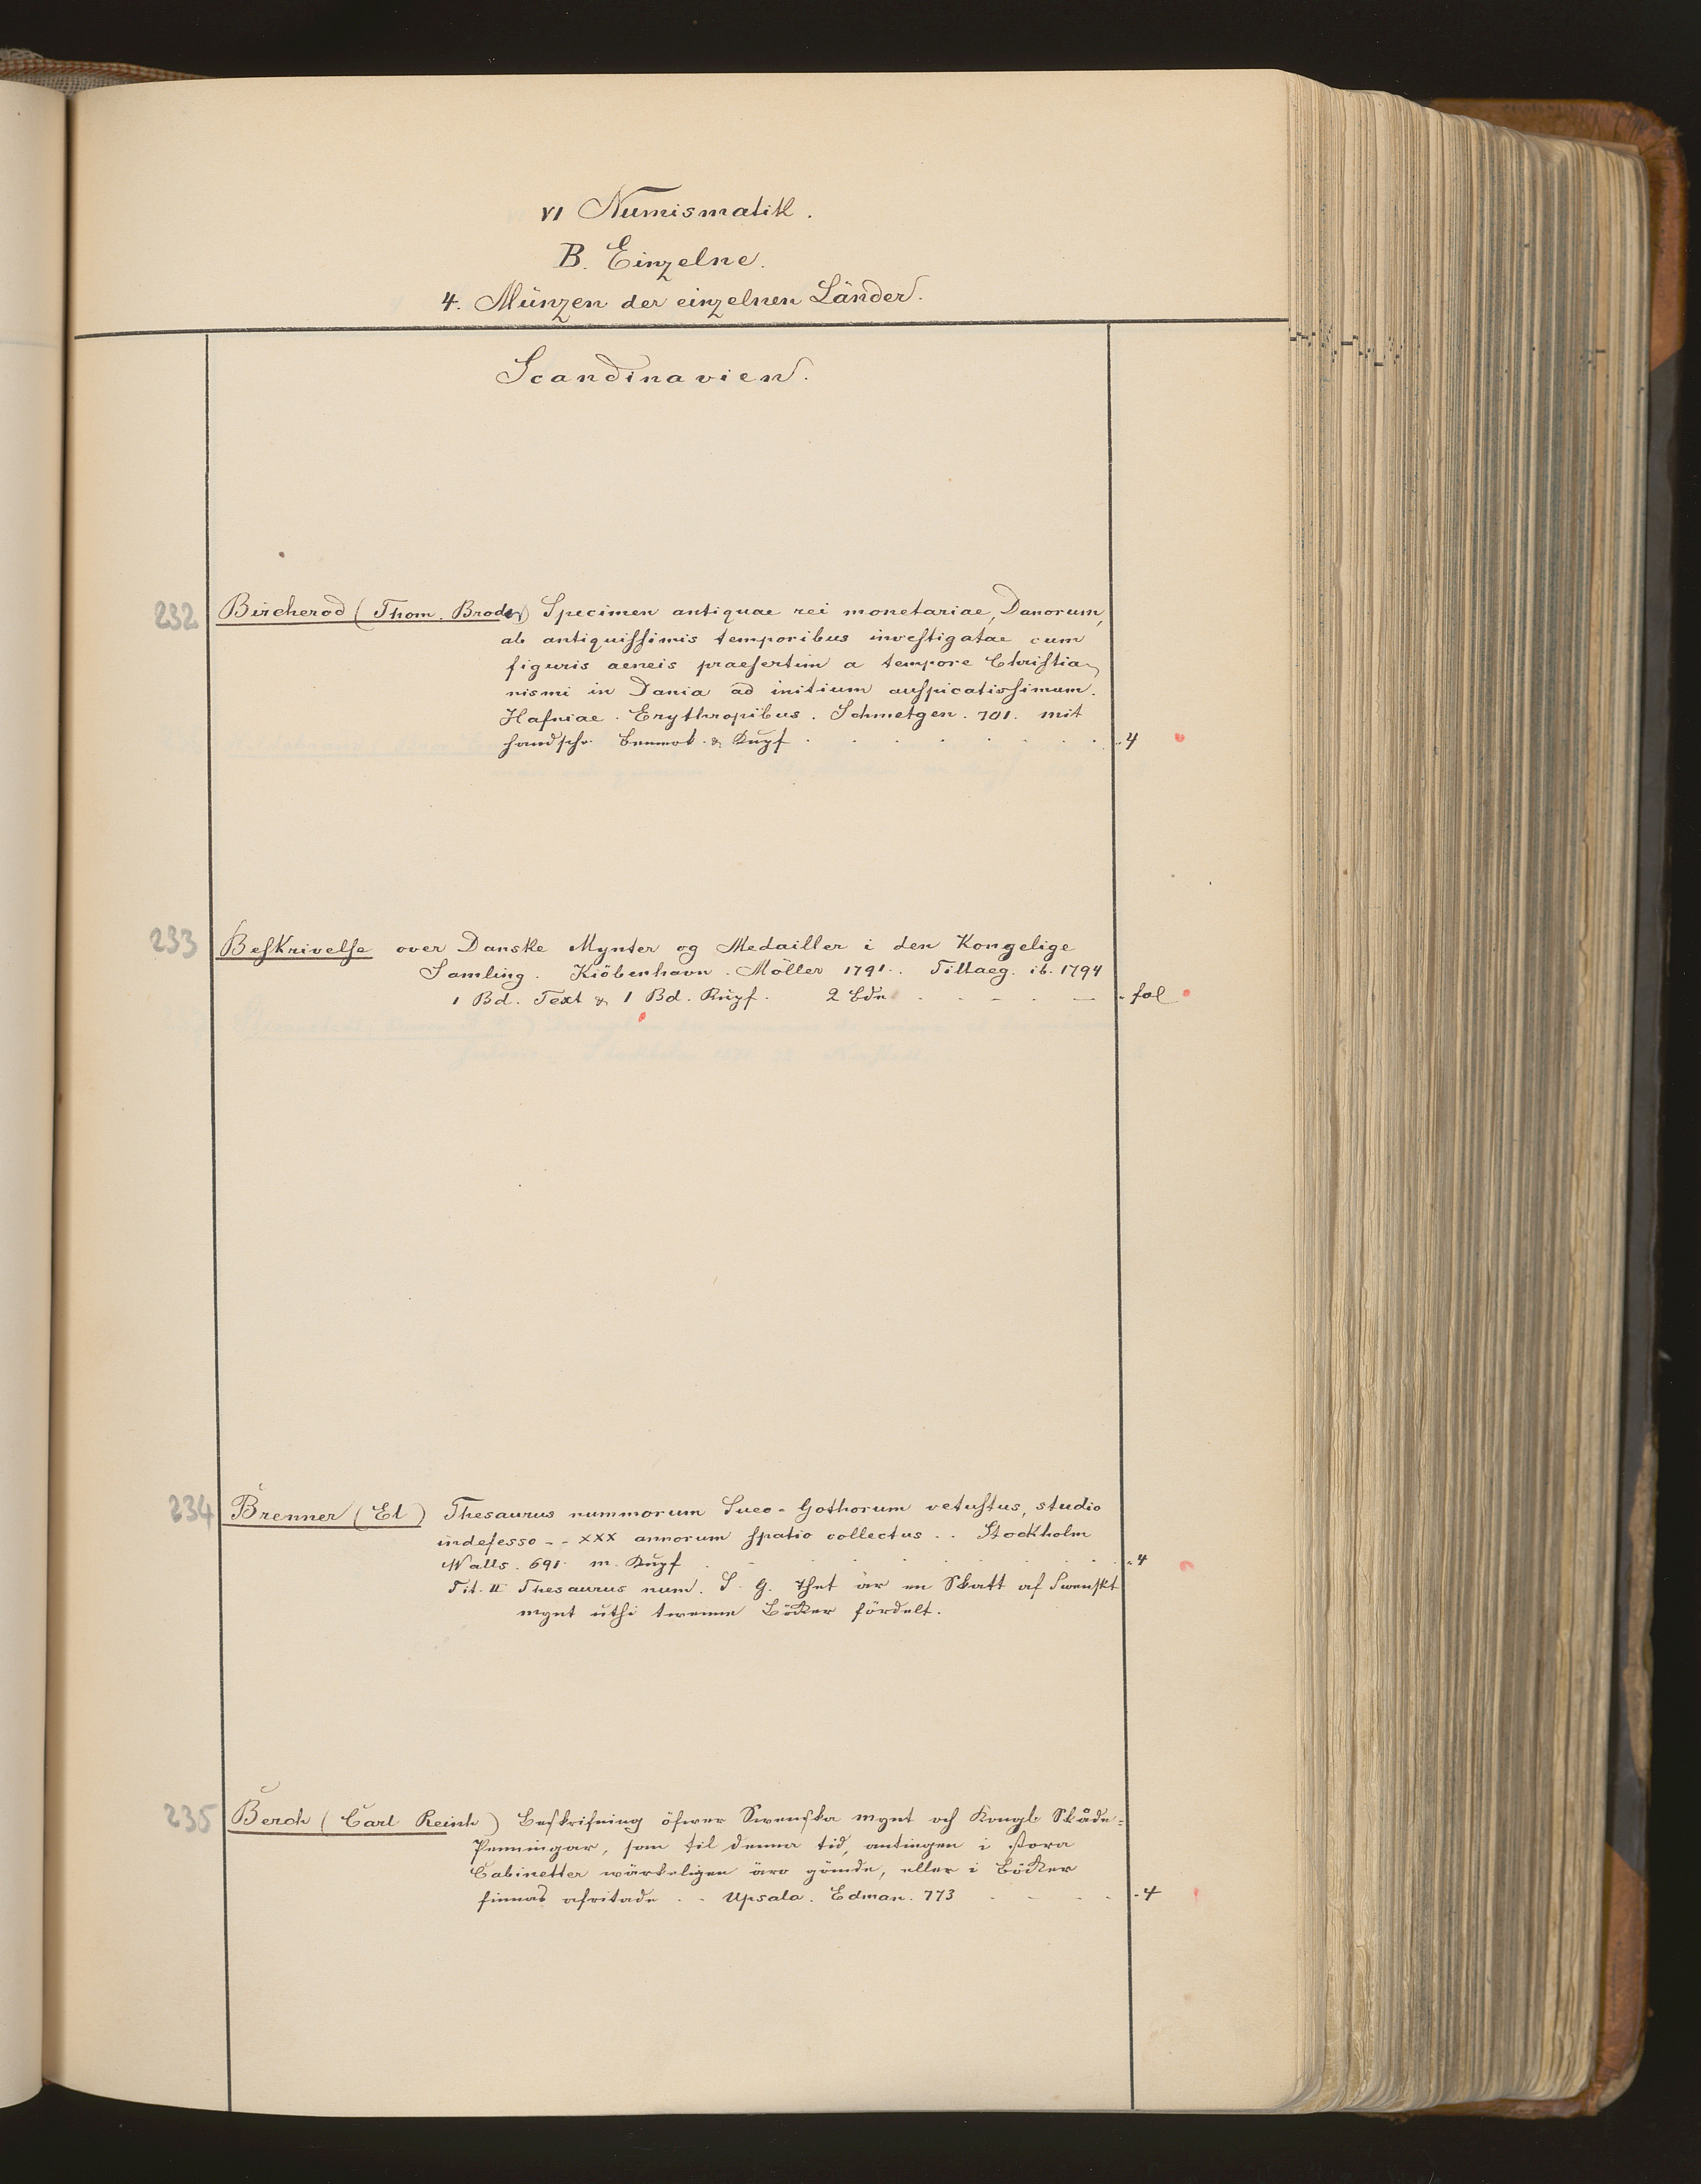 VI Numismatik.
B. Einzelne.
4. Münzen der einzelnen Länder.
Scandinavien.
232 Bircherod (Thom. Broder) Specimen antiquae rei monetariae, Danorum,
ab antiquissimis temporibus investigatae cum
figuris aeneis praesertim a tempore Christia-
nismi in Dania ad initium auspicatissimum.
Hafniae. Erythropibus. Schmetgen. 701. mit
handschr. Bemerk. & Kupf. 4
233 Beskrivelse over Danske Mynter og Medailler i den Kongelige
Samling. Kiöbenhavn. Möller 1791.. Tillaeg. ib. 1794
1 Bd. Text & 1 Bd. Kupf. 2 Bde fol
234 Brenner (El) Thesaurus nummorum Sueo-Gothorum vetustus, studio
indefesso -- XXX annorum spatio collectus .. Stockholm
Walls. 691. m. Kupf 4
Tit. II Thesaurus num. S. G. thet är en Skatt af Swenskt
mynt uthi twenne Böcker fördelt.
235 Berch (Carl Reinh) Beskrifning öfwer Swenska mynt och Kongl. Skåde-
Penningar, som til denna tid, antingen i stora
Cabinetter wärkeligen äro gömde, eller i Böcker
finnas afritade .. Upsala. Edman. 773 4